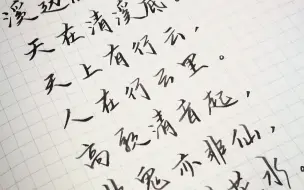 溪边
天在清溪底。
天上有行云，
人在行云里。
高歌清音起，
鬼亦非仙，
水。